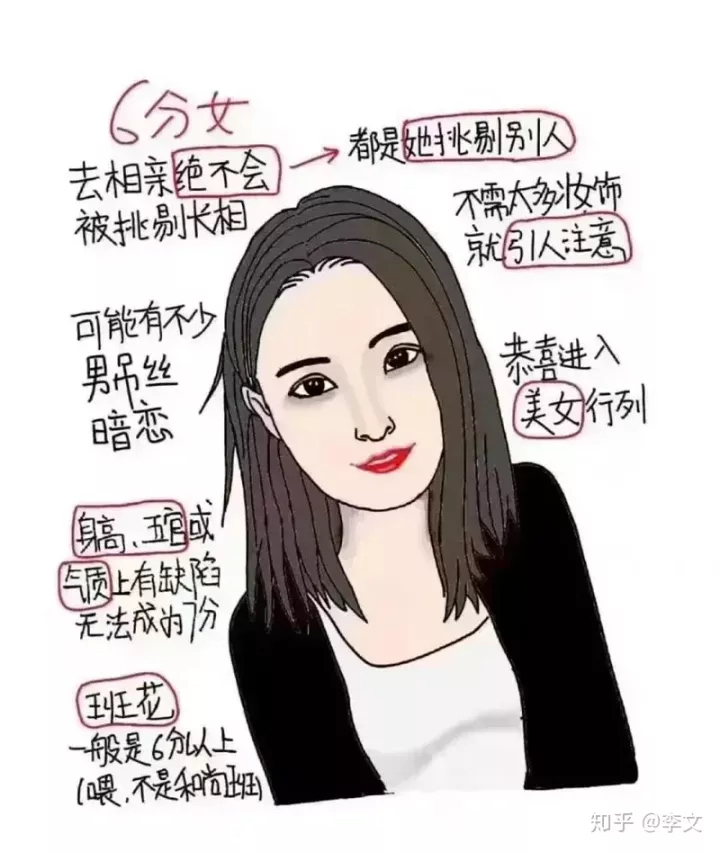 6分女
去相亲绝不会
被挑剔长相
都是她挑剔别人
不需太多妆饰
就引人注意
可能有不少
男吊丝
暗恋
恭喜进入
美女行列
身高、五官或
气质上有缺陷
无法成为7分
班花
一般是6分以上
(喂,不是和尚班)
知乎 @李文